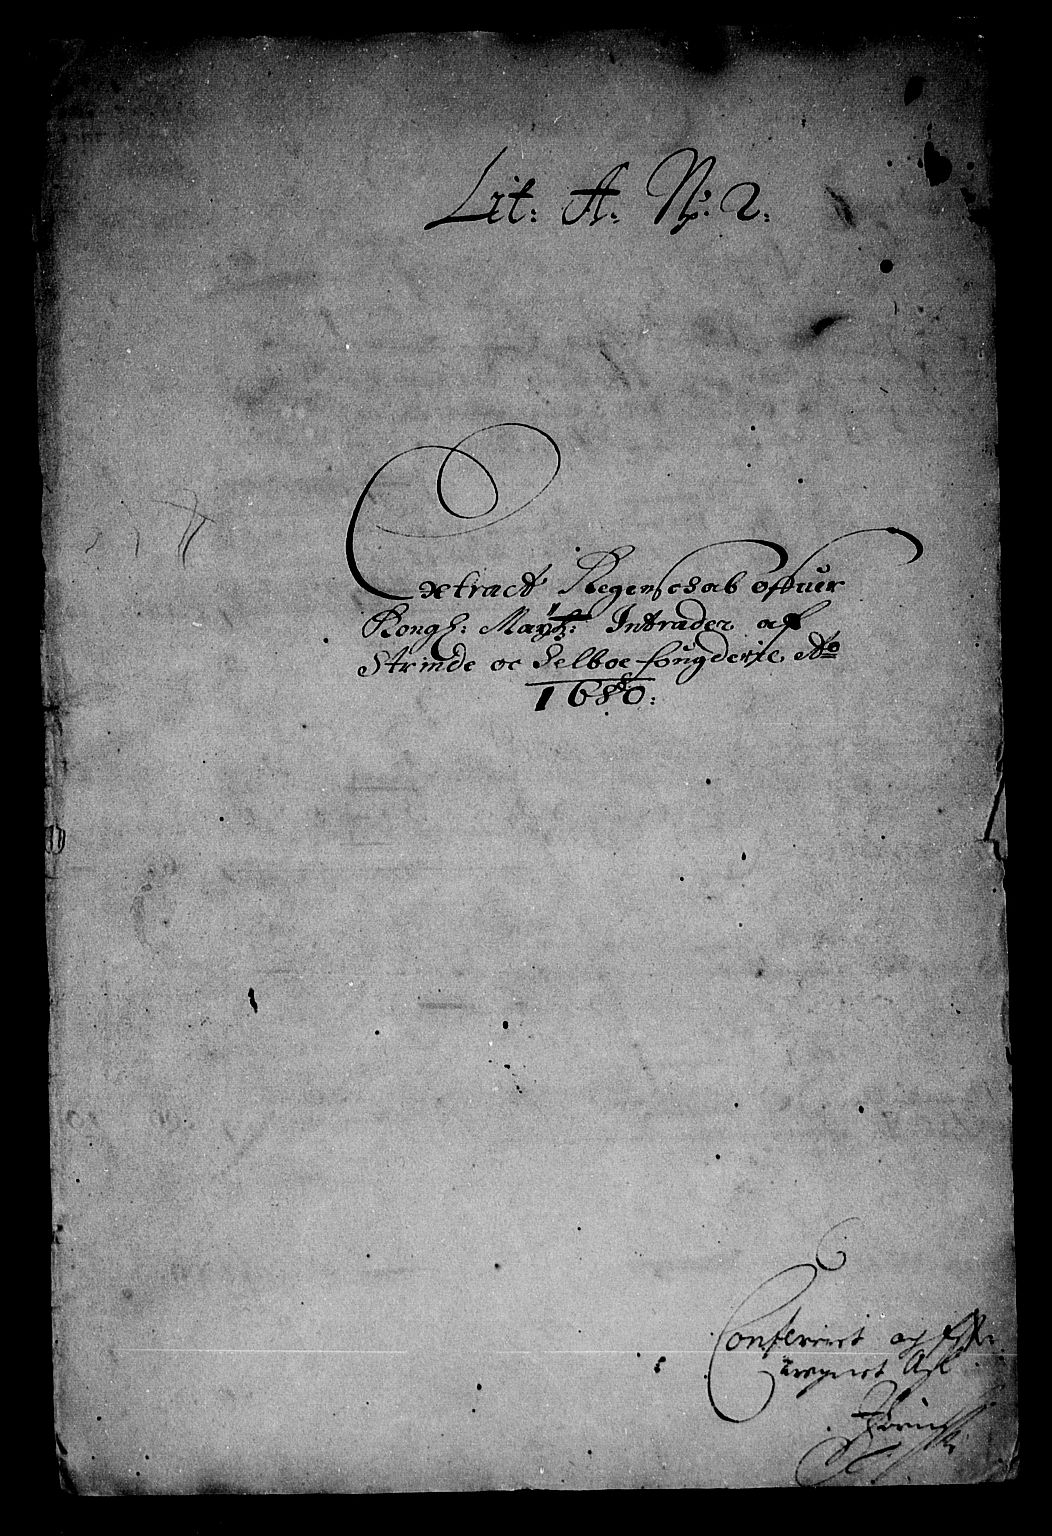 Lit: A. No. 2.
Extract Regenschab offuer
Kongh: Maytz: Intrader aff
Strinde oc Selboe fougderie Ao
1680:
Confereret og Efter
regnet Aff